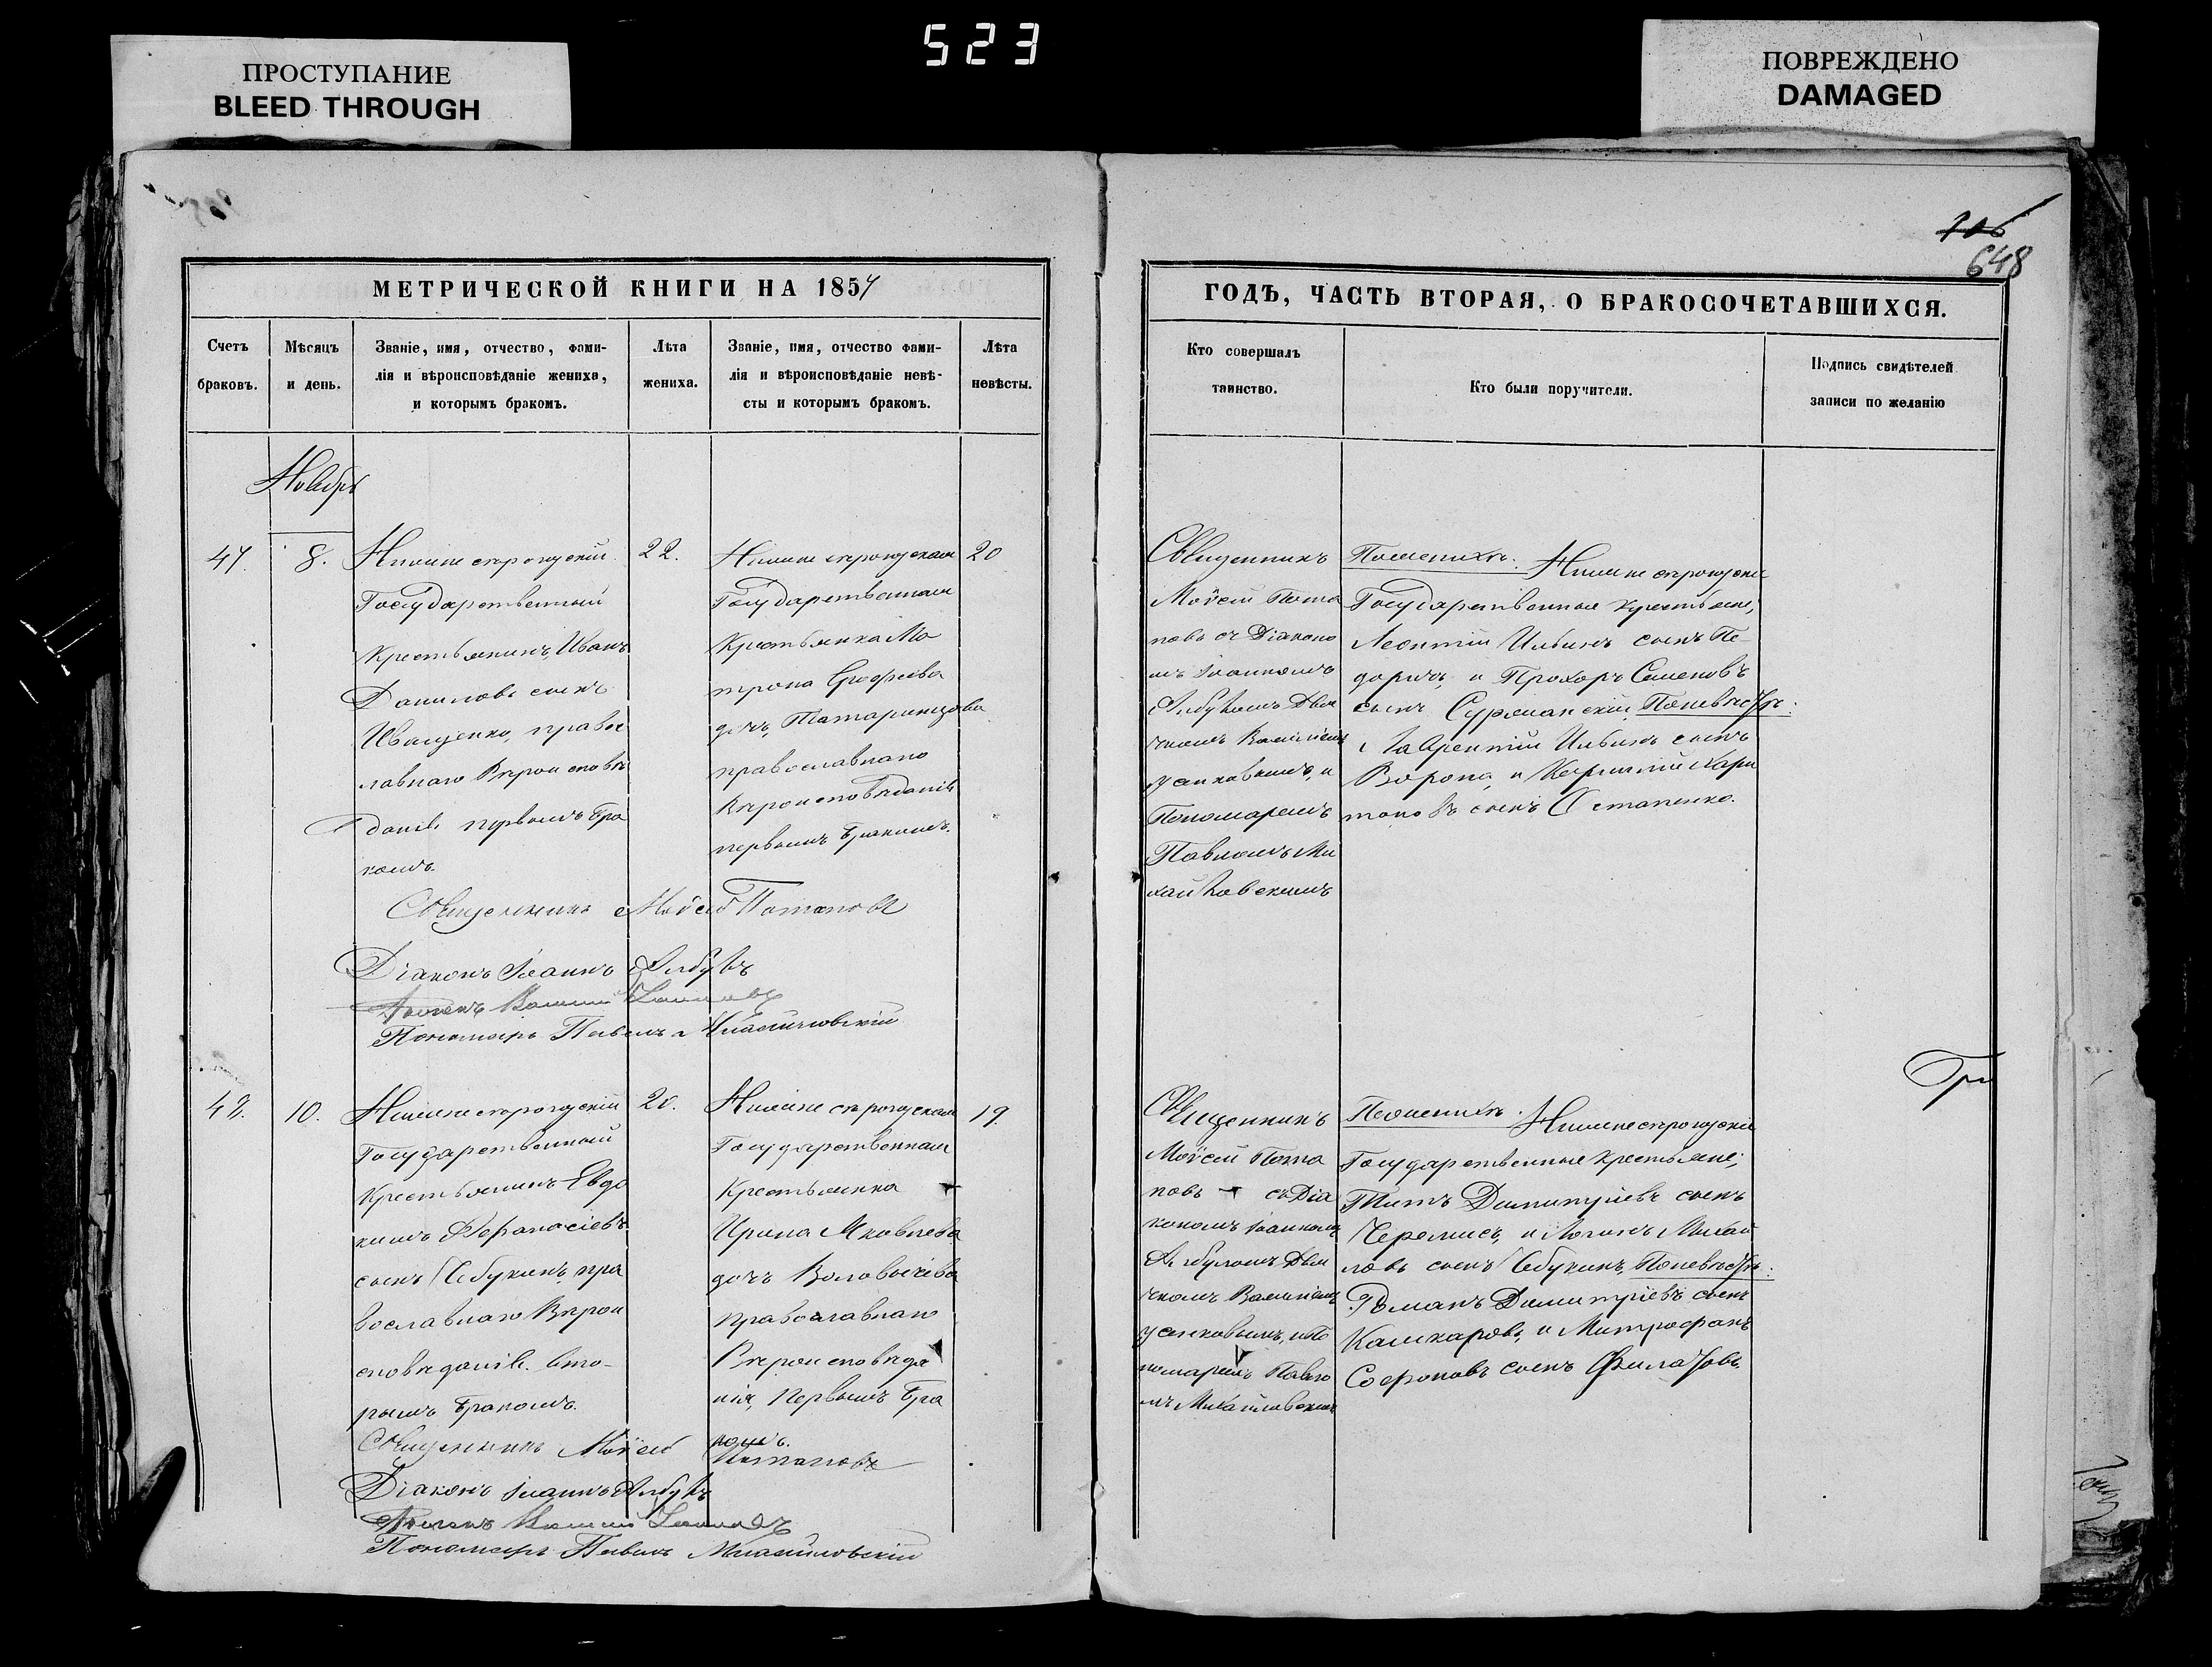 523
ПРОСТУПАНИЕ
BLEED THROUGH
ПОВРЕЖДЕНО
DAMAGED
106
648
МЕТРИЧЕСКОЙ КНИГИ НА 1854
Счетъ
браковъ.
Мѣсяцъ
и день.
Званіе, имя, отчество, фами-
лія и вѣроисповѣданіе жениха,
и которымъ бракомъ.
Лѣта
жениха.
Званіе, имя, отчество фами-
лія и вѣроисповѣданіе невѣ-
сты и которымъ бракомъ.
Лѣта
невѣсты.
Ноябрь
47.
8.
Нижнесѣрогозскій
Государственный
Крестьянинъ, Иванъ
Даниловъ сынъ
Иващенко, правос
лавнаго Вѣроисповѣ
данія первымъ бра
комъ.
22.
Нижнесѣрогозская
Государственная
Крестьянка Ма
трона Ерофеева
дочь, Татаринцова
православнаго
Вѣроисповѣданія
первымъ бракомъ.
20
Священникъ Моѵсей Потаповъ
Діаконъ Іоаннъ
Пономарь Павелъ Михайловскій
10.
Нижнесѣрогозскій
Государственный
Крестьянинъ Евдо
кимъ Афанасіевъ
сынъ Чебукинъ, пра
вославнаго Вѣрои
сповѣданія. вто-
рымъ бракомъ.
20.
Нижнесѣрогозская
Государственная
Крестьянка
Ирина Яковлева
дочь
православнаго
Вѣроисповѣда
нія, первымъ бра
комъ.
19.
Священникъ Моѵсей Потаповъ
Діаконъ Іоаннъ
Пономарь Павелъ Михайловскій
ГОДЪ, ЧАСТЬ ВТОРАЯ, О БРАКОСОЧЕТАВШИХСЯ.
Кто совершалъ
таинство.
Кто были поручители.
Подпись свидѣтелей
записи по желанію
Священникъ
Моѵсей Пота
повъ съ Діаконо
мъ Іоанномъ
Дья
чкомъ Василіемъ
и
Пономаремъ
Павломъ Ми
хайловскимъ
По женихѣ: Нижнесѣрогозскіе
Государственные крестьяне,
Леонтій Ильинъ сынъ
и Прохоръ Семеновъ
сынъ По невѣстѣ:
Лаврентій Ильинъ сынъ
Ворона, и Хари
тоновъ сынъ Остапенко.
Священникъ
Моѵсей Пота
повъ съ Діа
кономъ Іоанномъ
Дья
чкомъ Василіемъ
и По
номаремъ Павло
мъ Михайловскимъ
По женихѣ: Нижнесѣрогозскіе
Государственные крестьяне;
Титъ Димитріевъ сынъ
Черемисъ, и Логинъ Михай
ловъ сынъ Чебукинъ, По невѣстѣ:
Романъ Димитріевъ сынъ
Кашкаровъ, и Митрофанъ
Софроновъ сынъ Филатовъ.